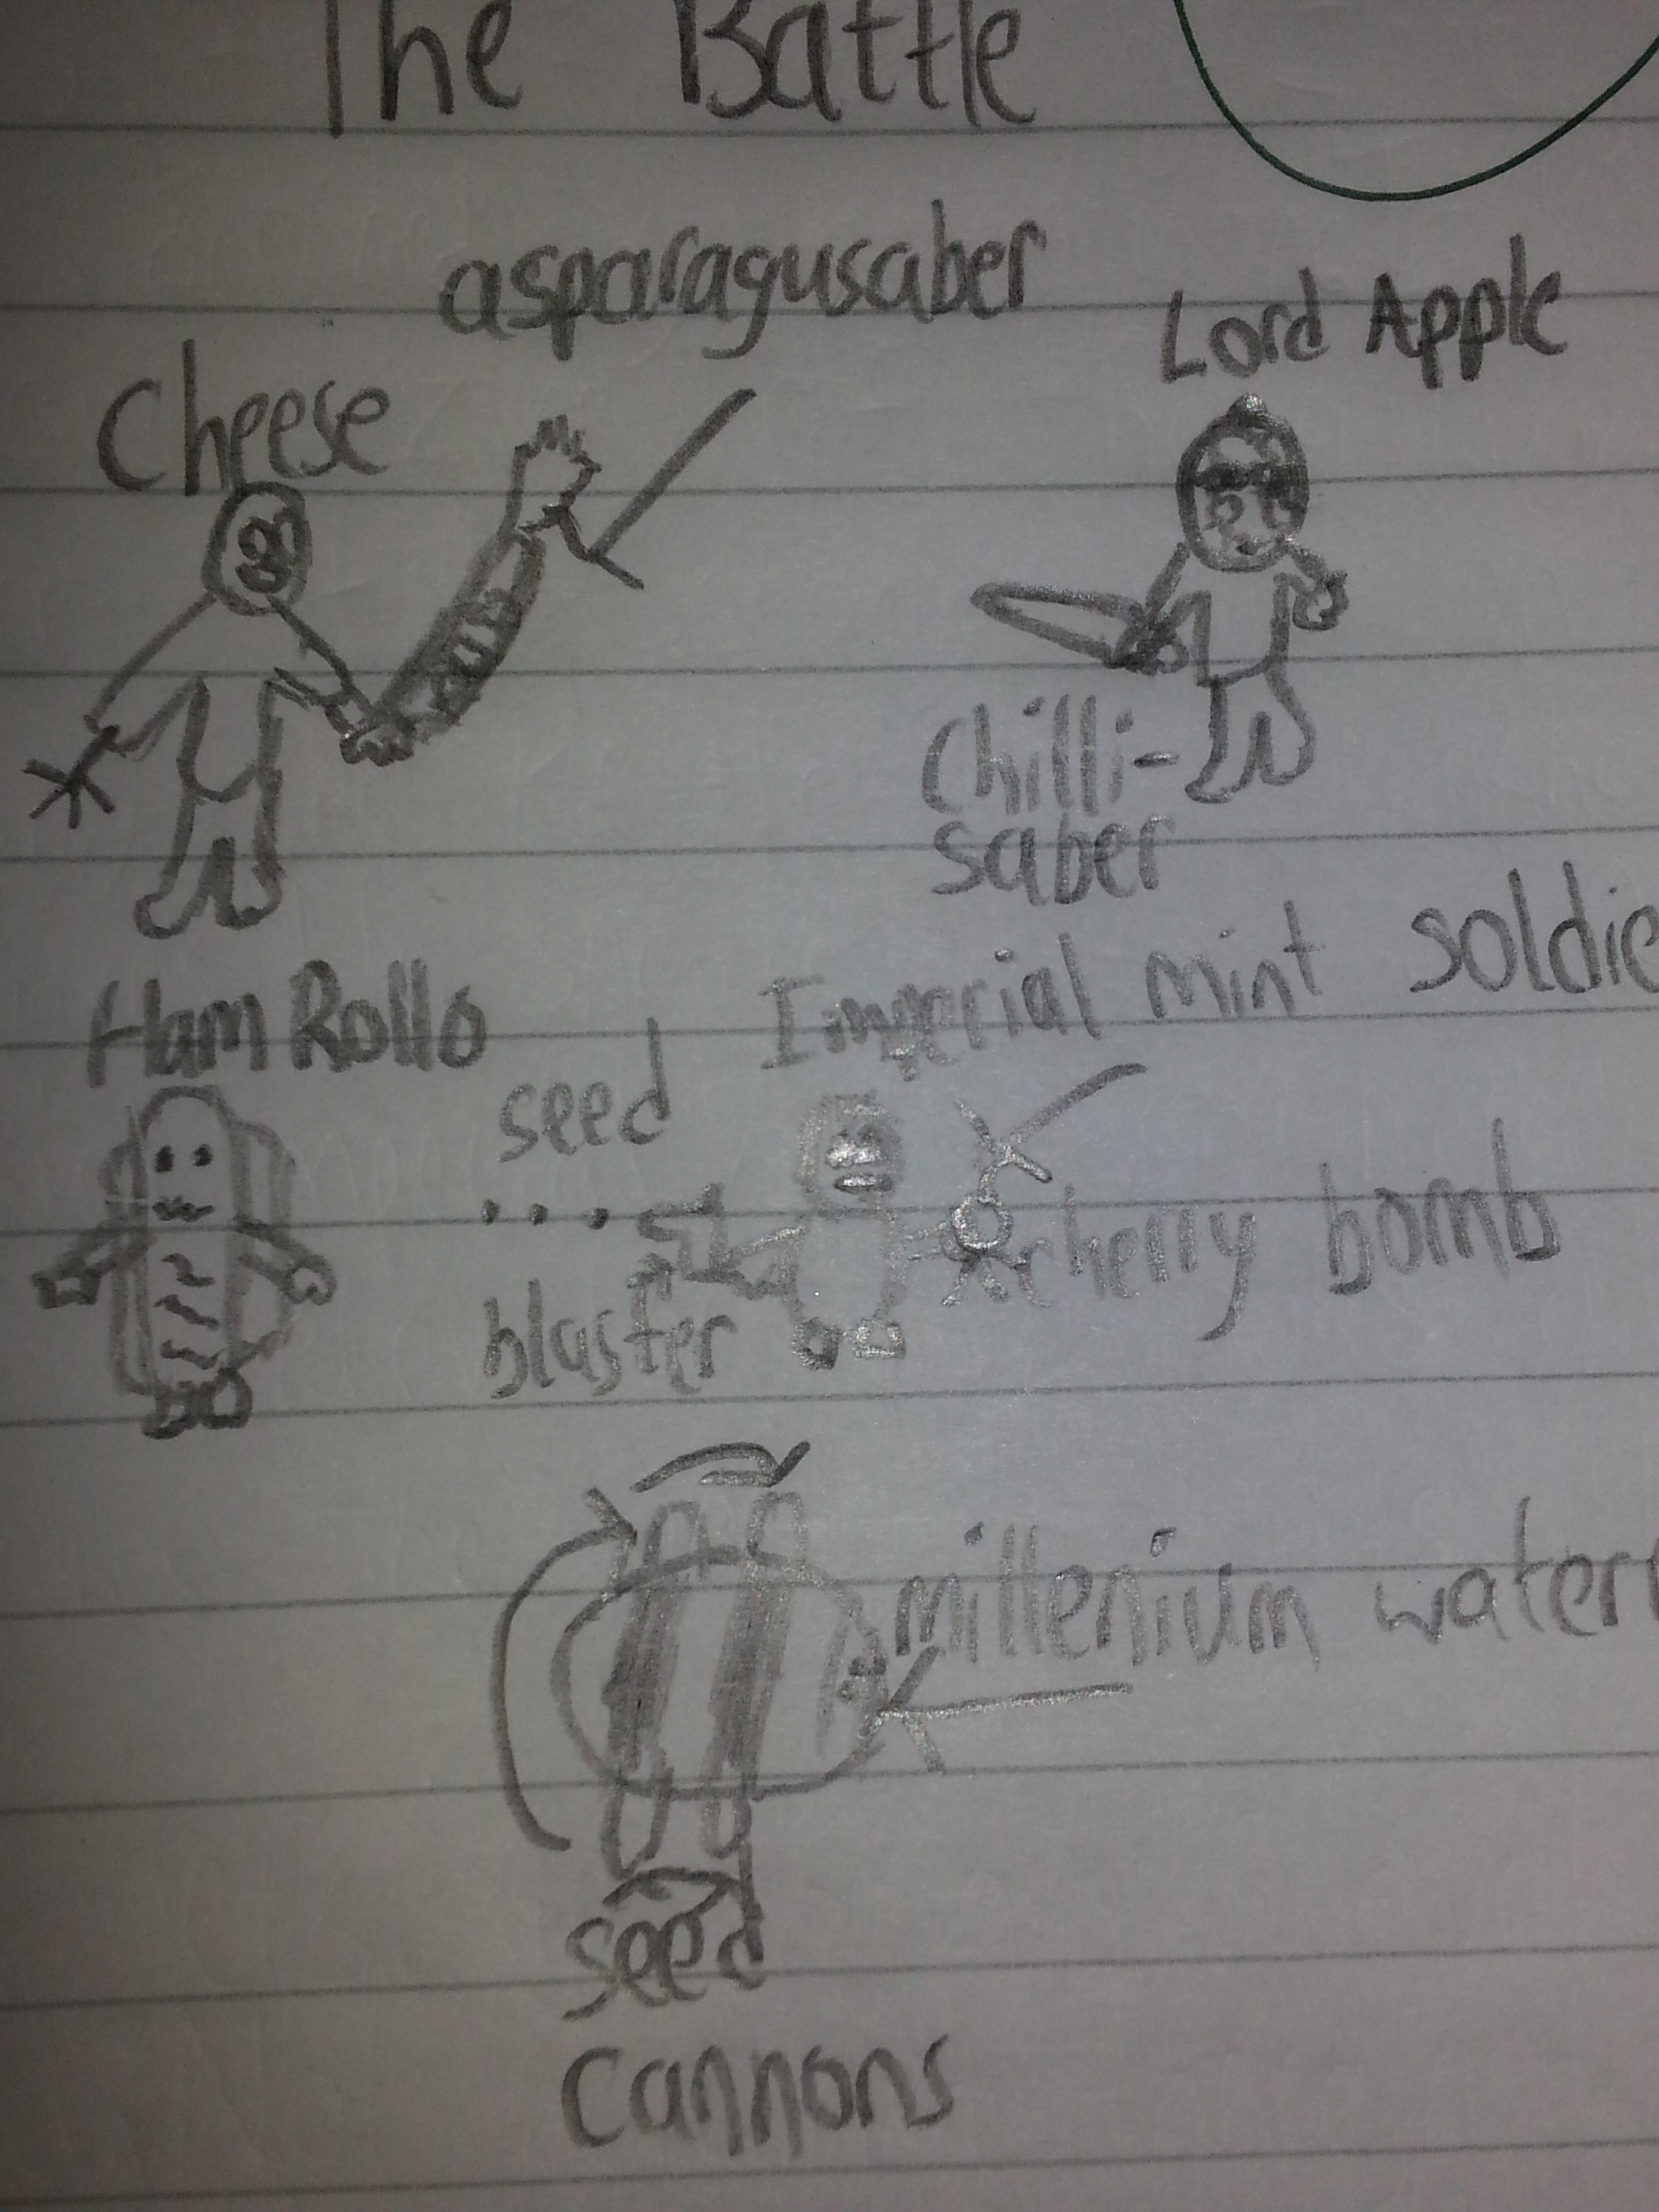 The Battle
asparagusaber
Lord Apple
Cheese
Chilli-
saber
Ham Rollo
Imperial mint soldie
seed
blaster
cherry bomb
millenium water
seed
cannons